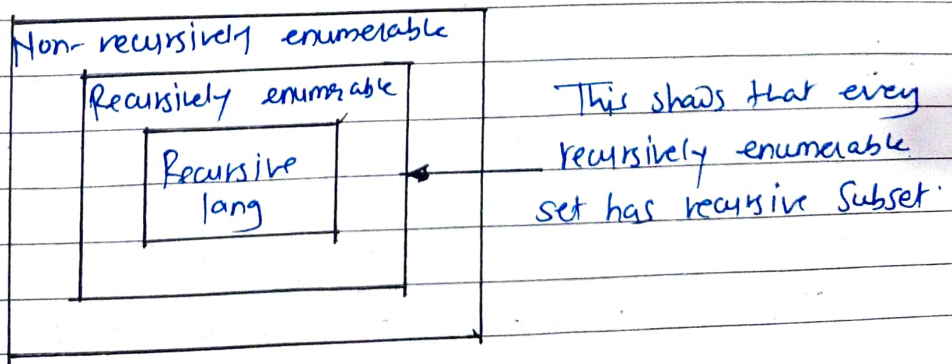 Non-recursively enumerable
Recursively enumerable
Recursive
lang
This shows that every
recursively enumerable
set has recursive subset.